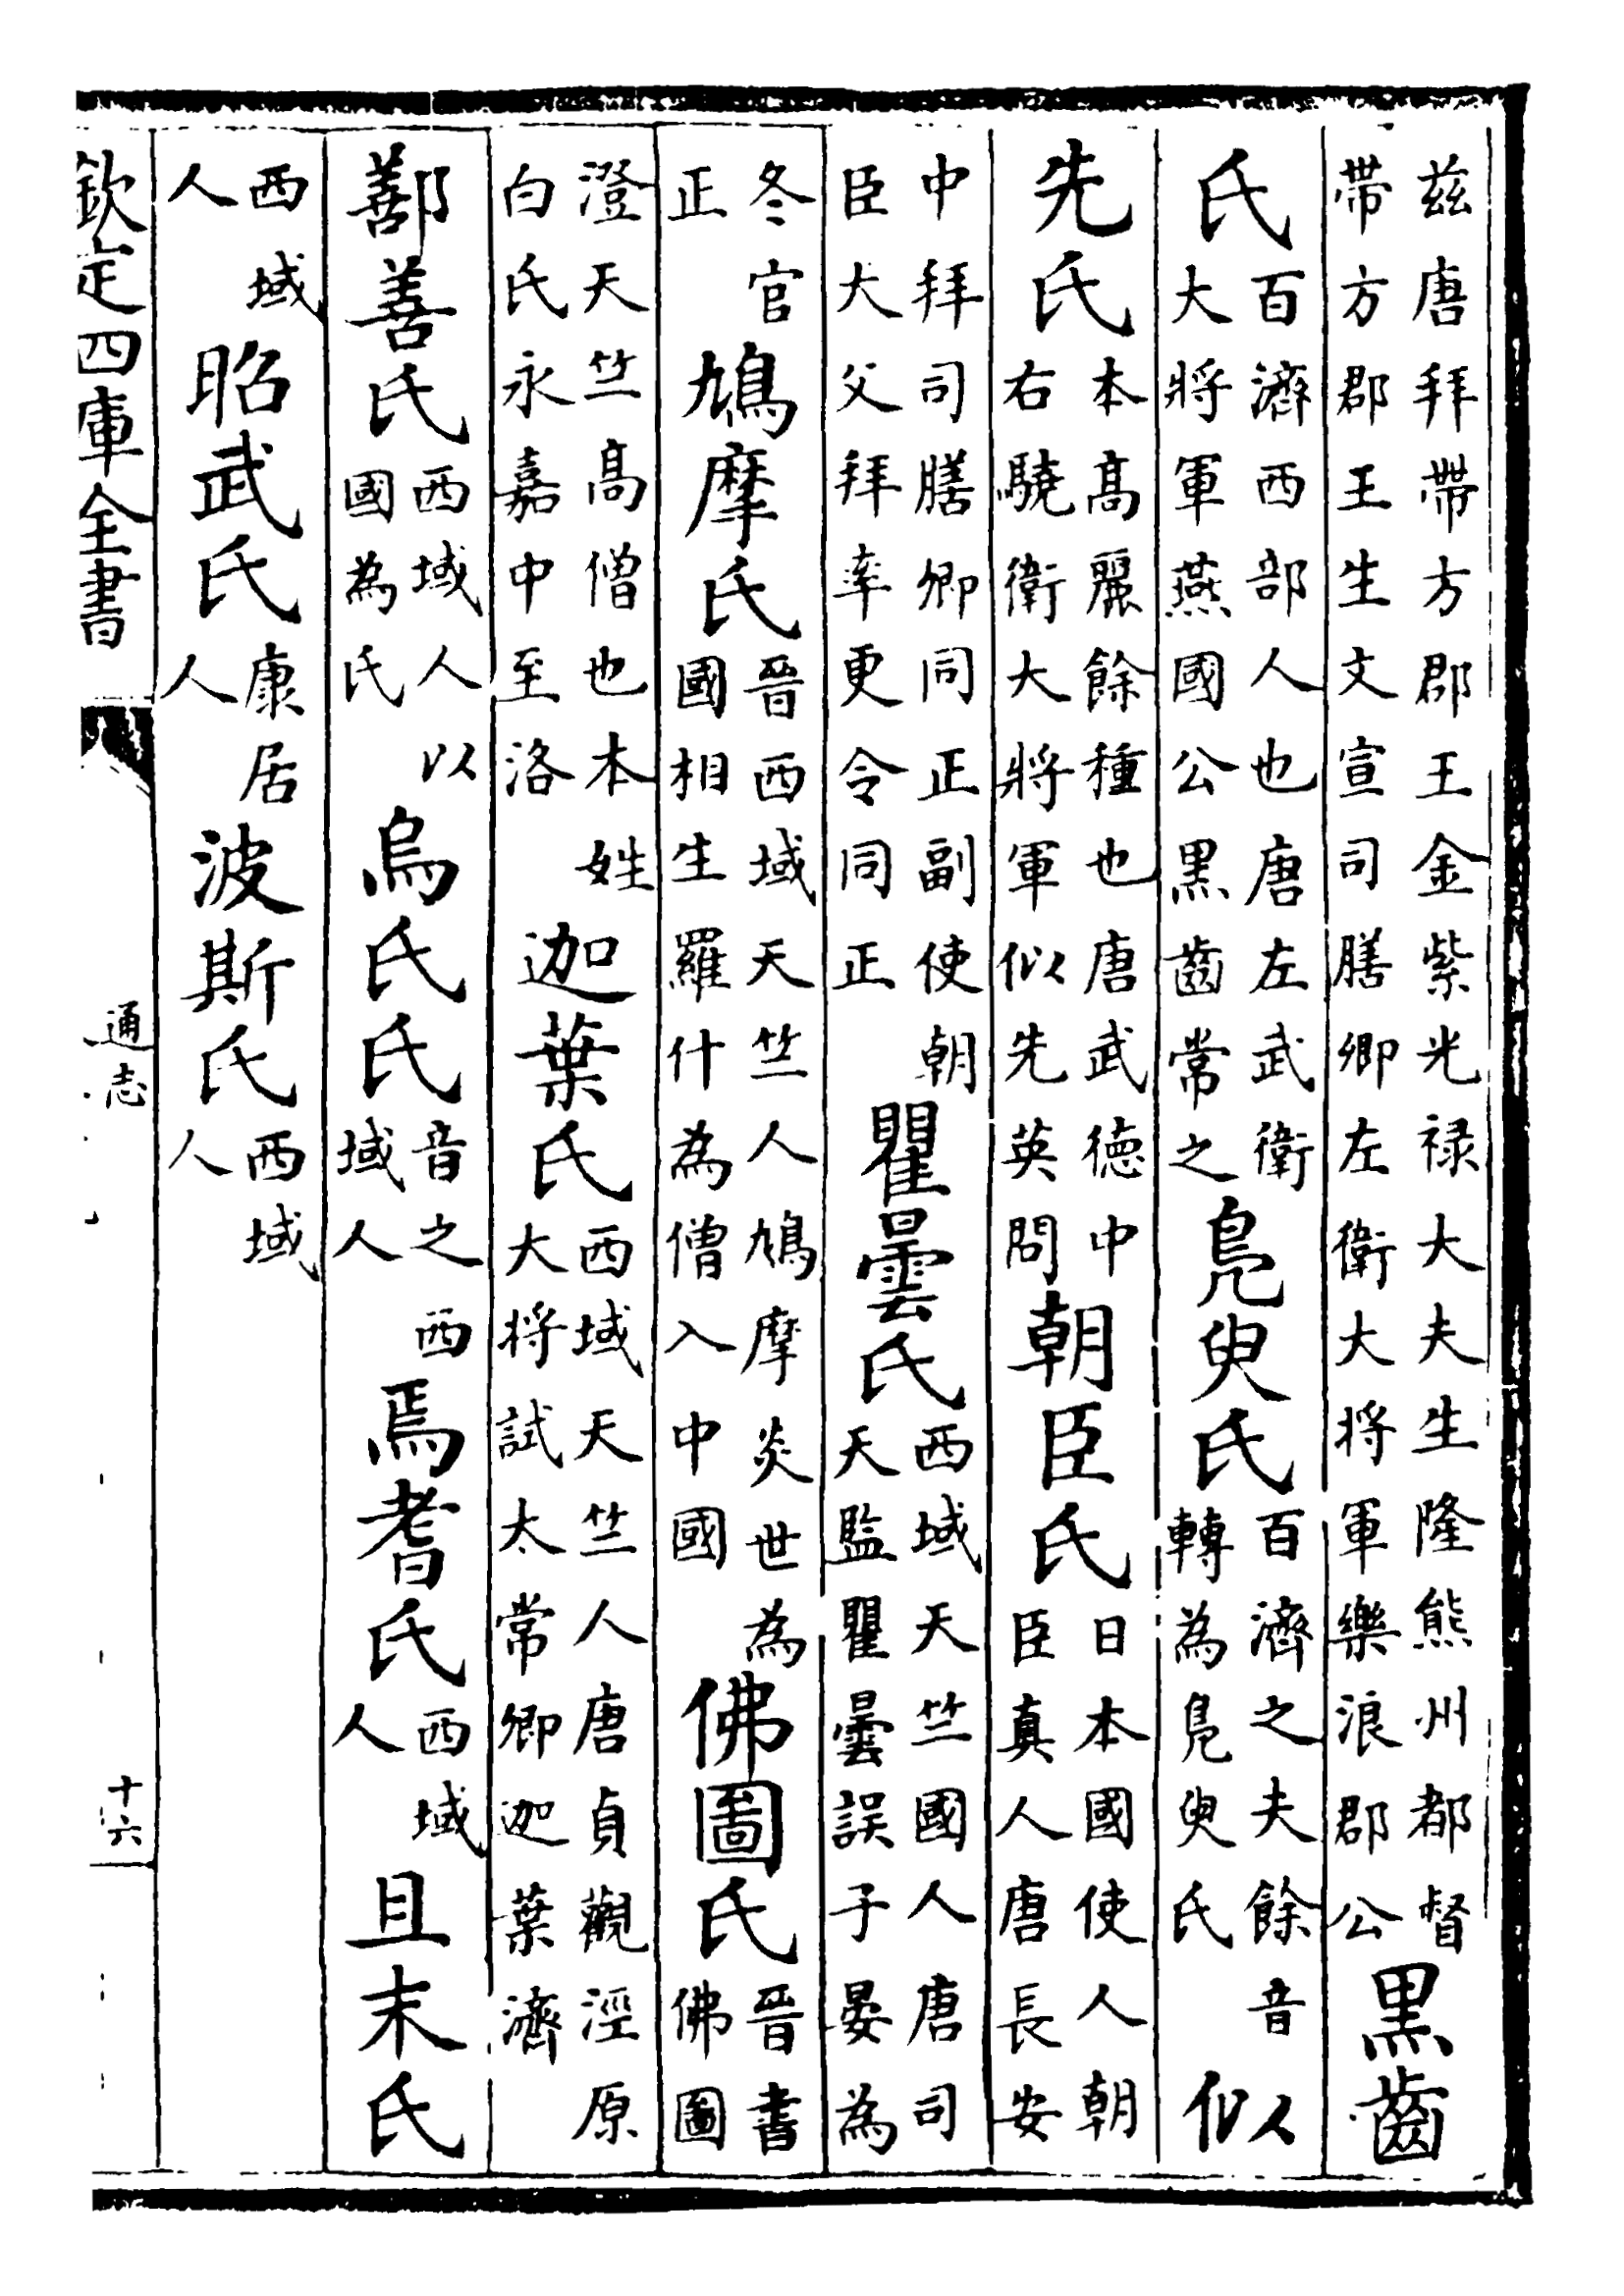 兹唐拜帶方郡王金紫光禄大夫生隆熊州都督帶方郡王生文宣司膳卿左衛大将軍樂浪郡公黒齒
氏百濟西部人也唐左武衛大將軍燕國公黒齒常之鳬臾氏百濟之夫餘音轉為鳬臾氏似
先氏本髙麗餘種也唐武徳中右驍衛大將軍似先英問朝臣氏日本國使人朝臣真人唐長安
中拜司膳卿同正副使朝臣大父拜率更令同正瞿曇氏西域天竺國人唐司天監瞿曇誤子晏為
冬官正鳩摩氏晉西域天竺人鳩摩炎世為國相生羅什為僧入中國佛圖氏晉書佛圖
澄天竺髙僧也本姓白氏永嘉中至洛迦葉氏西域天竺人唐貞觀涇原大将試太常卿迦葉濟
鄯善氏西域人以國為氏烏氏氏音之西域人焉耆氏西域人且末氏
西域人昭武氏康居人波斯氏西域人
欽定四庫全書
通志
十六